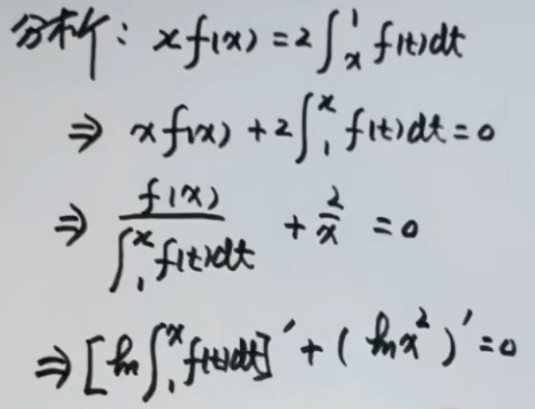 分析: x f(x) = 2∫_x^1 f(t)dt
⇒ x f(x) + 2∫_1^x f(t)dt = 0
⇒ f(x) / ∫_1^x f(t)dt + 2/x = 0
⇒ [ln∫_1^x f(t)dt]' + (ln x^2)' = 0